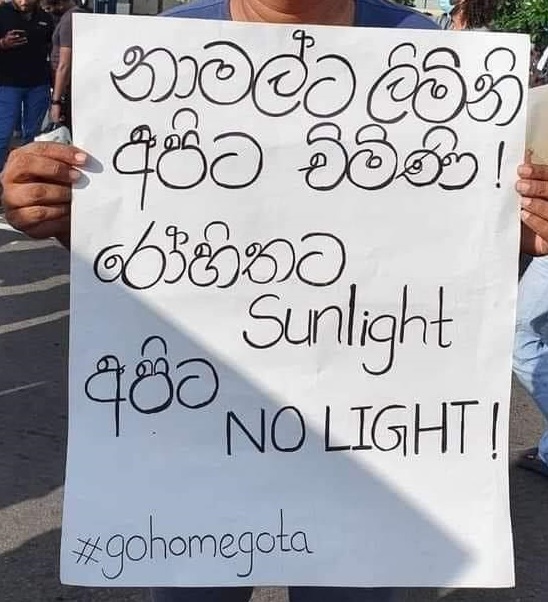 නාමල්ට ලිමිනි
අපිට චිම්ණි!
රෝහිතට
Sunlight
අපිට
NO LIGHT!
#gohomegota